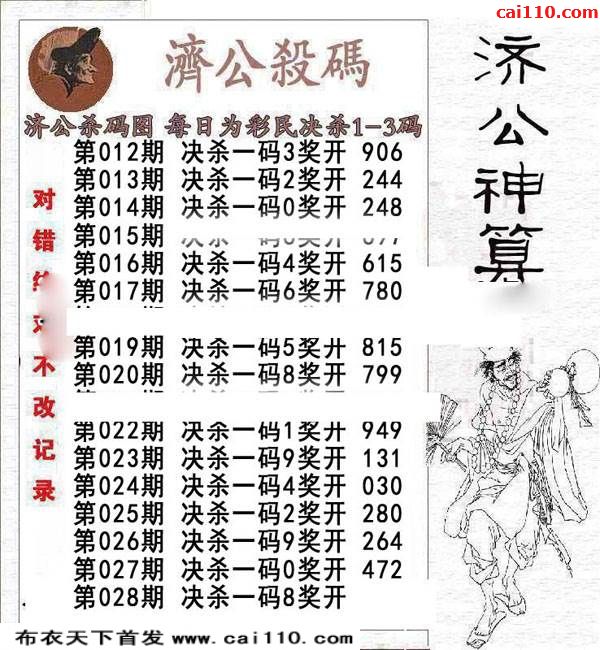 cai110.com
濟公殺碼
济公杀码图 每日为彩民决杀1-3码
第012期 决杀一码3奖开 906
第013期 决杀一码2奖开 244
第014期 决杀一码0奖开 248
第015期 决杀一码
第016期 决杀一码4奖开 615
第017期 决杀一码6奖开 780
第019期 决杀一码5奖开 815
第020期 决杀一码8奖开 799
第022期 决杀一码1奖开 949
第023期 决杀一码9奖开 131
第024期 决杀一码4奖开 030
第025期 决杀一码2奖开 280
第026期 决杀一码9奖开 264
第027期 决杀一码0奖开 472
第028期 决杀一码8奖开
对错
不改记录
济公神算
布衣天下首发 www.cai110.com